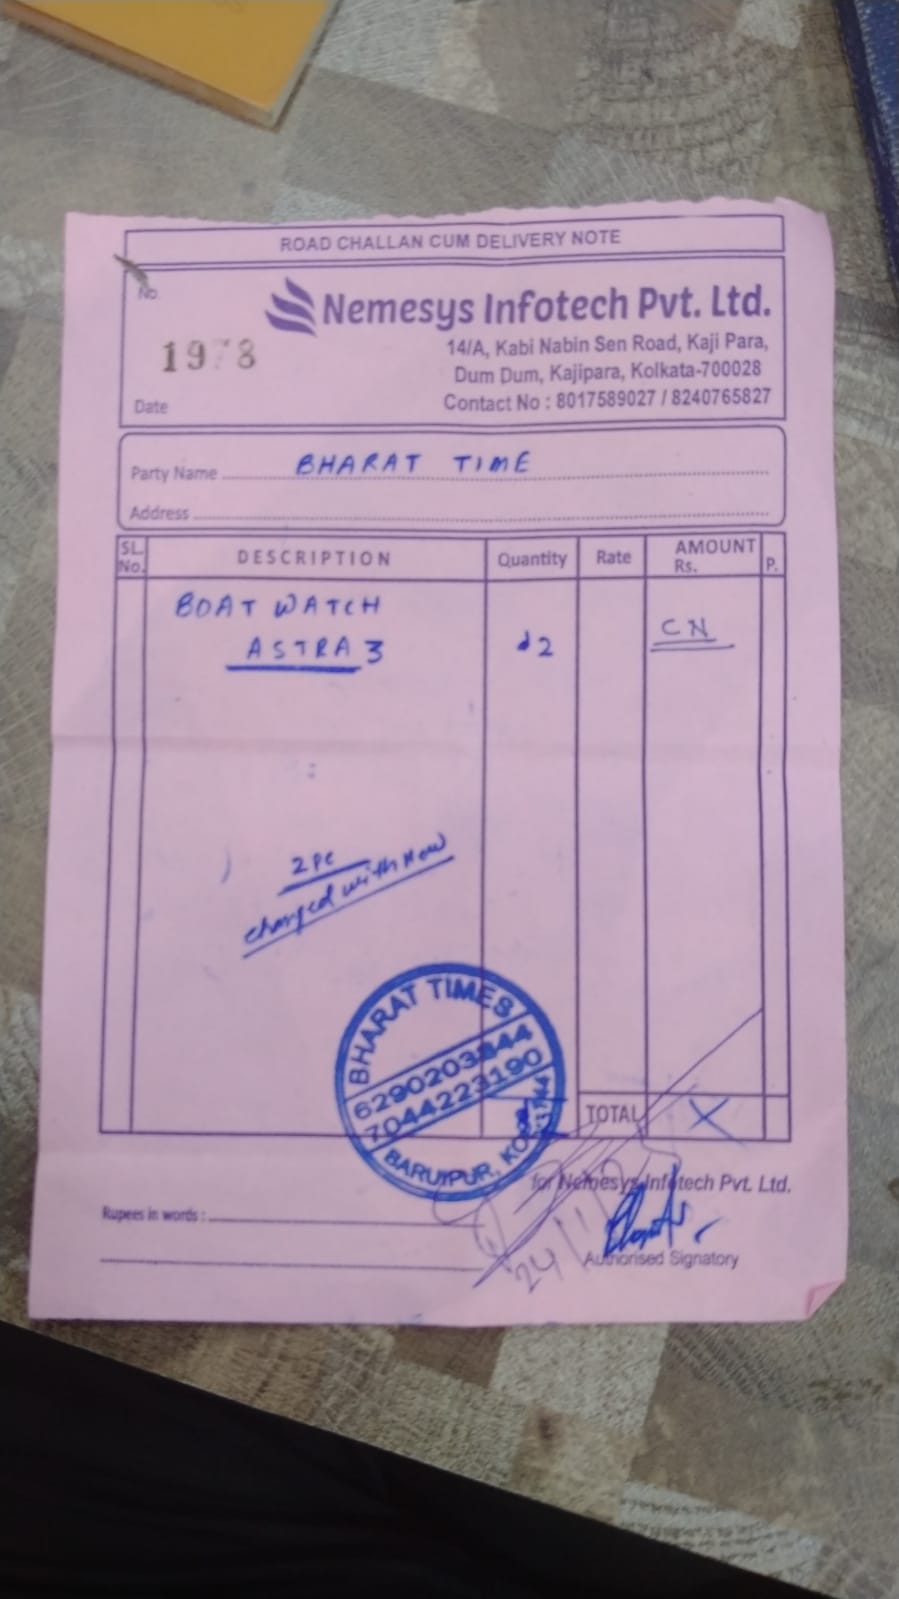 ROAD CHALLAN CUM DELIVERY NOTE
No.
Nemesys Infotech Pvt. Ltd.
1978
14/A, Kabi Nabin Sen Road, Kaji Para,
Dum Dum, Kajipara, Kolkata-700028
Date
Contact No : 8017589027 / 8240765827
Party Name BHARAT TIME
Address
SL. No. DESCRIPTION Quantity Rate AMOUNT Rs. P.
BOAT WATCH
ASTRA 3 2 CN
2 Pc
with New
BHARAT TIMES
6290203844
7044223190
BARUIPUR,
TOTAL X
for Nemesys Infotech Pvt. Ltd.
Rupees in words :
24/1
Authorised Signatory